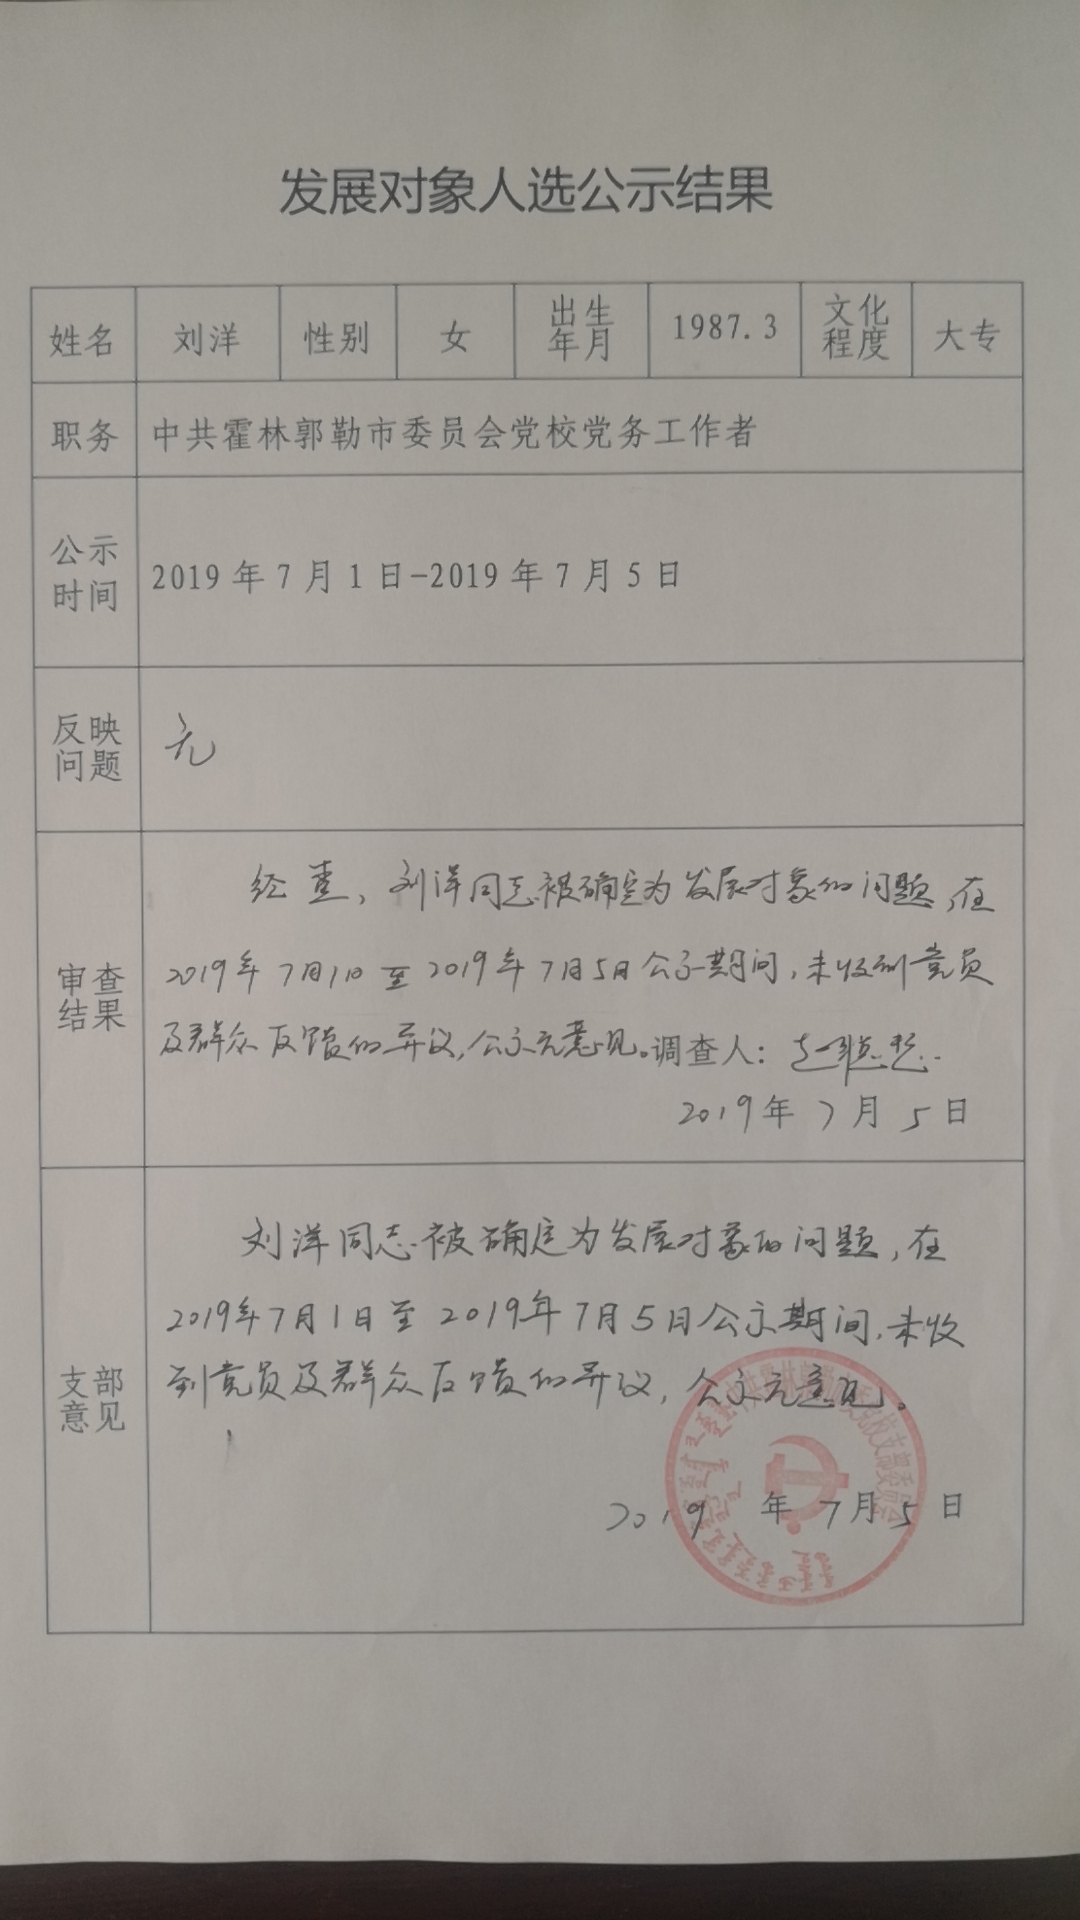 发展对象人选公示结果
姓名 刘洋 性别 女 出生年月 1987.3 文化程度 大专
职务 中共霍林郭勒市委员会党校党务工作者
公示时间 2019年7月1日-2019年7月5日
反映问题 无
审查结果
经查，刘洋同志被确定为发展对象的问题，在
2019年7月1日至2019年7月5日公示期间，未收到党员
及群众反馈的异议，公示无意见。调查人：
2019年7月5日
支部意见
刘洋同志被确定为发展对象的问题，在
2019年7月1日至2019年7月5日公示期间，未收
到党员及群众反馈的异议，公示无意见。
2019年7月5日